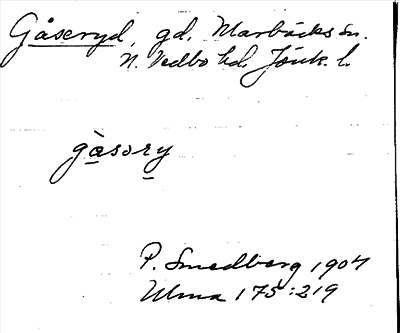 Gåseryd, gd, Marbäcks sn.
N. Vedbo hd, Jönk. l.
gåsory
P. Smedberg 1907
Ulma 175:219